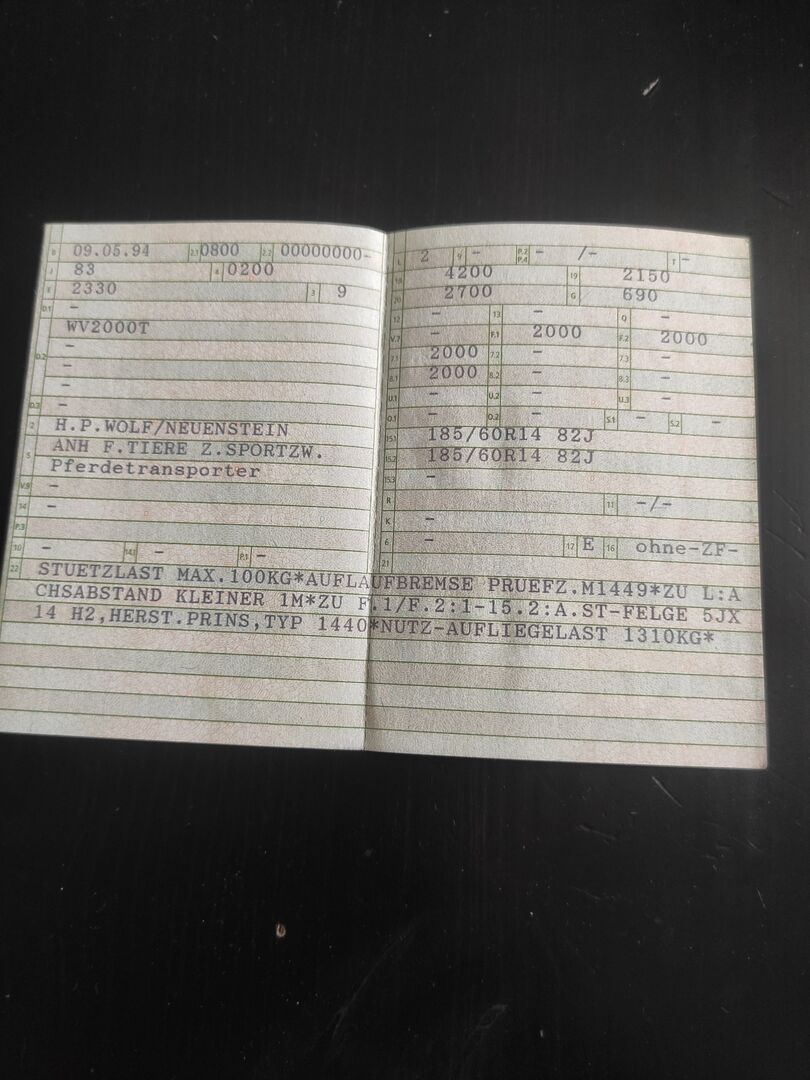 B 09.05.94 2.1 0800 2.2 00000000-
J 83 4 0200
E 2330 3 9
D.1 -
WV2000T
D.2 -
-
-
D.3 -
2 H.P.WOLF/NEUENSTEIN
5 ANH F.TIERE Z.SPORTZW.
Pferdetransporter
V.9 -
14 -
P.3
10 - 14.1 - P.1 -
L 2 9 - P.2 P.4 - /- T -
18 4200 19 2150
20 2700 G 690
12 - 13 - Q -
V.7 - F.1 2000 F.2 2000
7.1 2000 7.2 - 7.3 -
8.1 2000 8.2 - 8.3 -
U.1 - U.2 - U.3 -
O.1 - O.2 - S.1 - S.2 -
15.1 185/60R14 82J
15.2 185/60R14 82J
15.3 -
R - 11 -/-
K -
6 - 17 E 16 ohne-ZF-
21
22 STUETZLAST MAX.100KG*AUFLAUFBREMSE PRUEFZ.M1449*ZU L:A
CHSABSTAND KLEINER 1M*ZU F.1/F.2:1-15.2:A.ST-FELGE 5JX
14 H2,HERST.PRINS,TYP 1440*NUTZ-AUFLIEGELAST 1310KG*